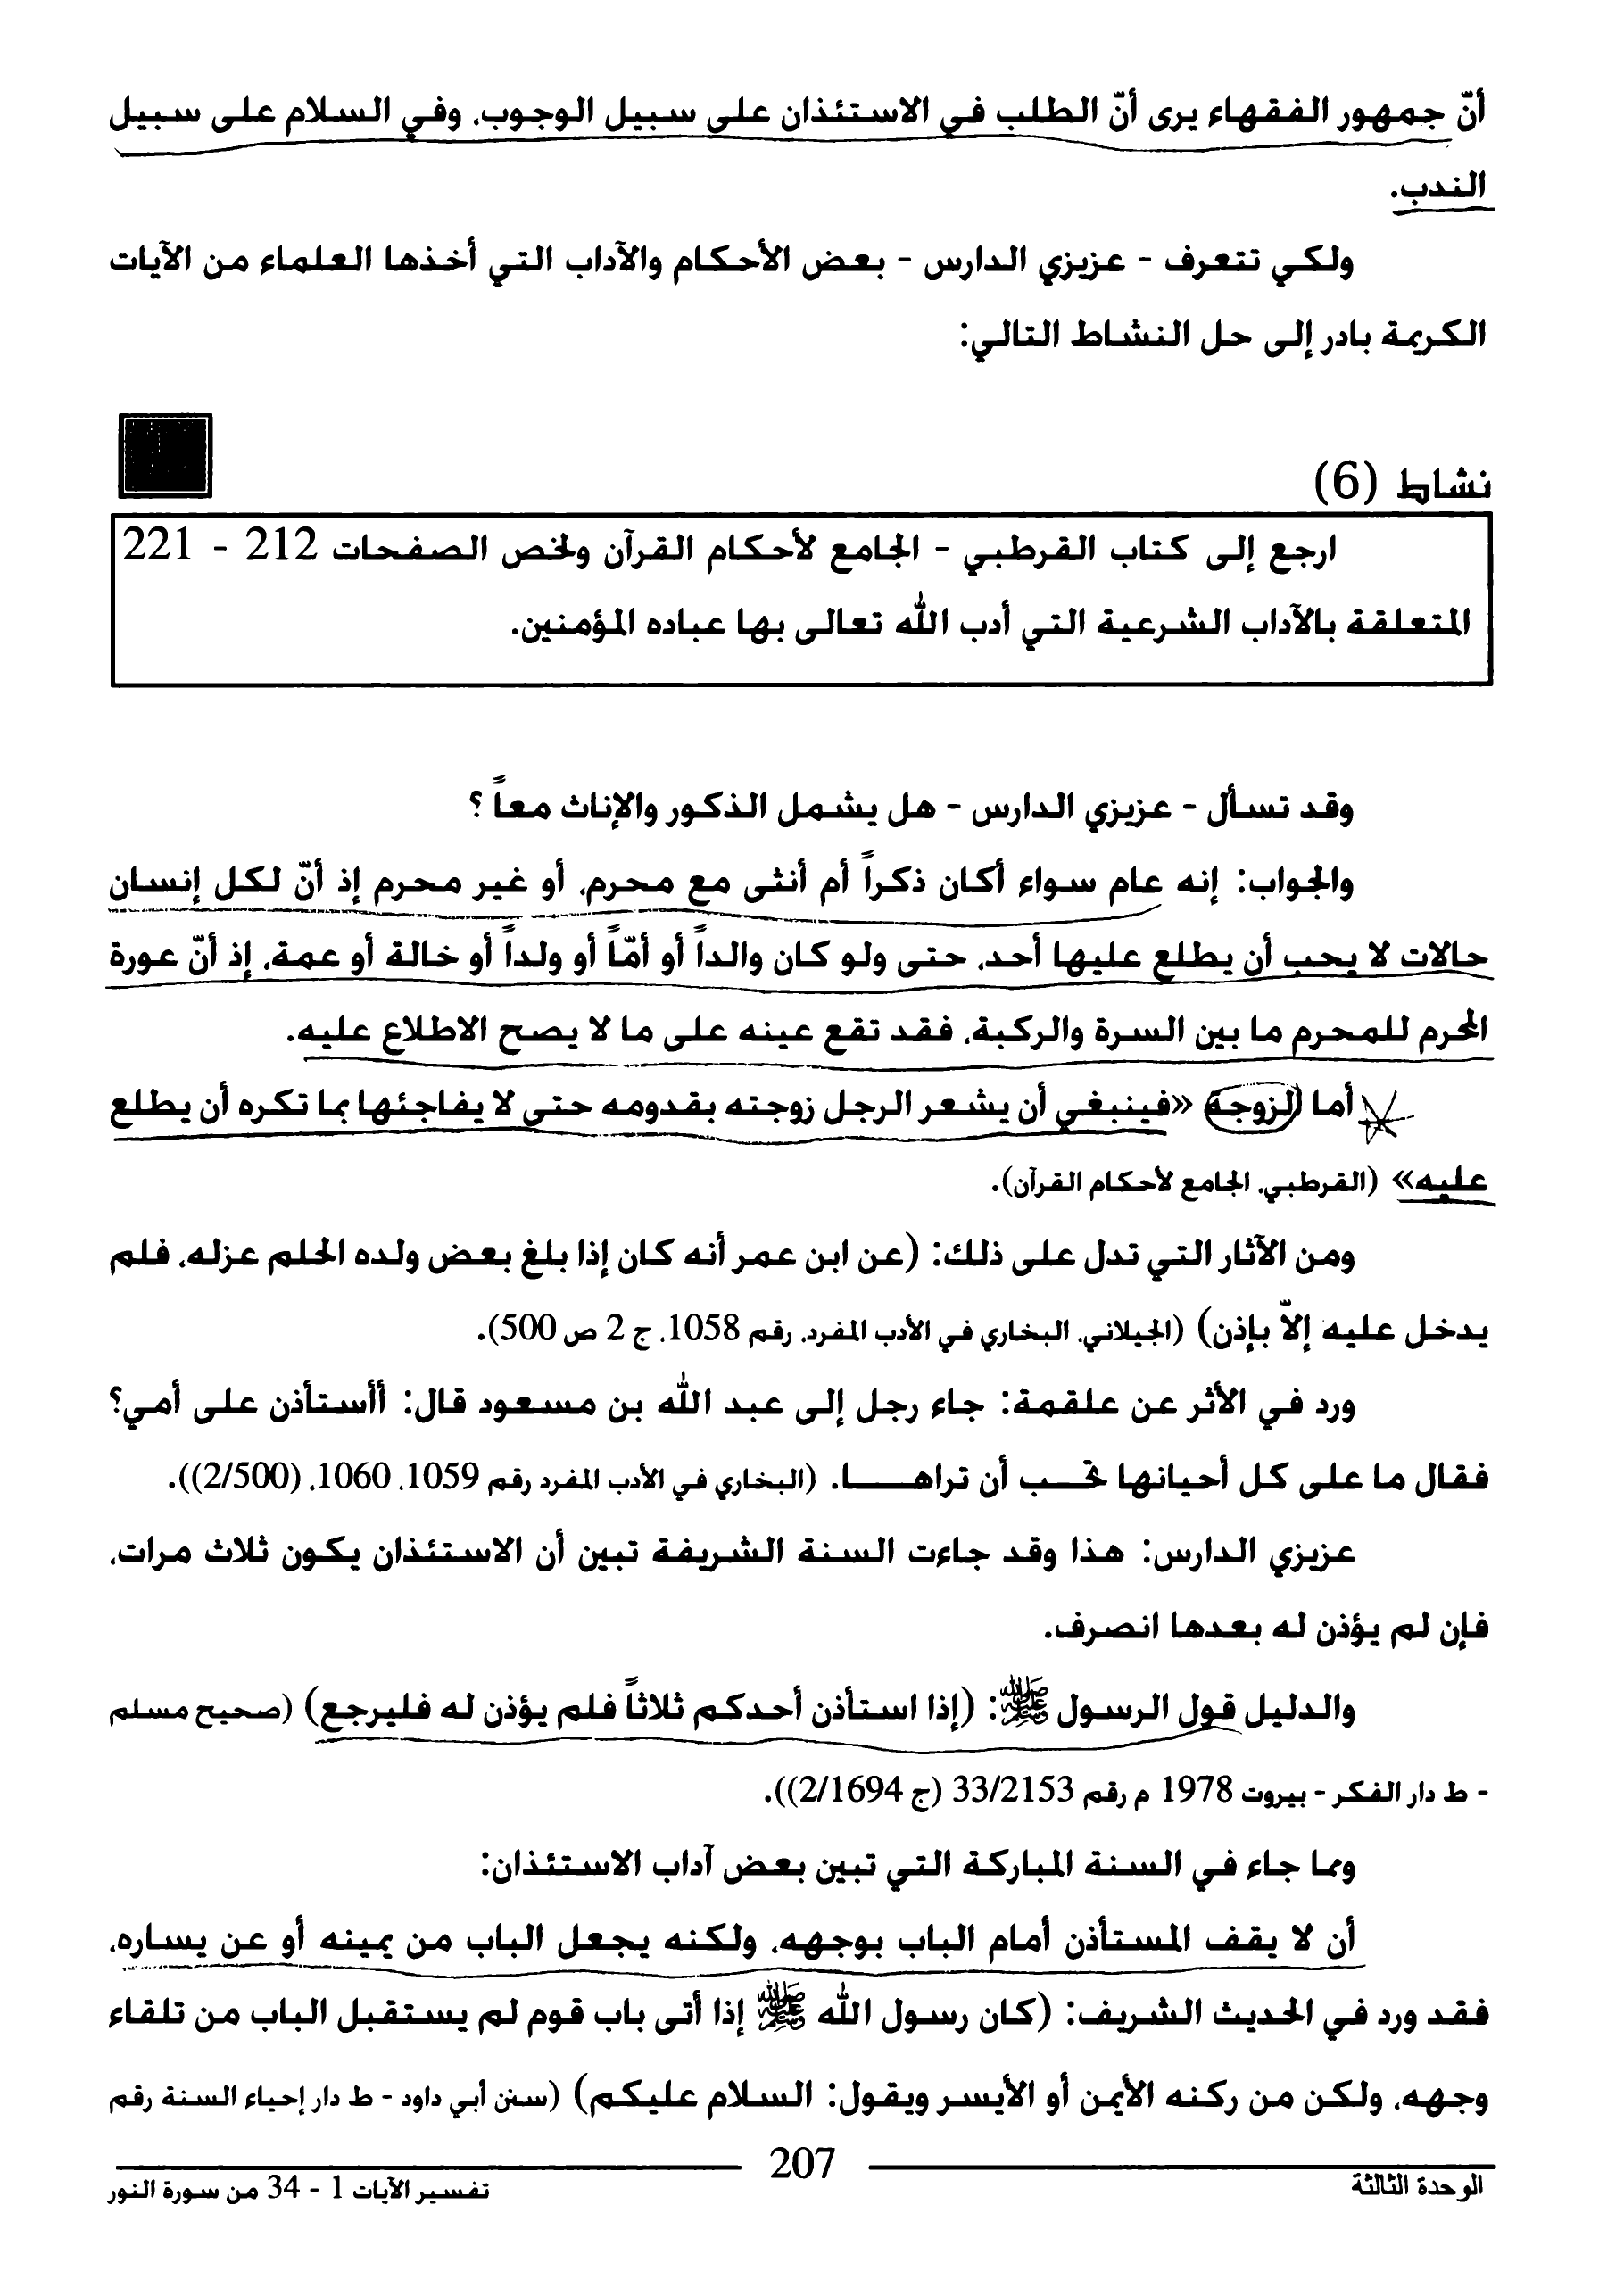 أنّ جمهور الفقهاء يرى أنّ الطلب في الاستئذان على سبيل الوجوب، وفي السلام على سبيل
الندب.
ولكي تتعرف - عزيزي الدارس - بعض الأحكام والآداب التي أخذها العلماء من الآيات
الكريمة بادر إلى حل النشاط التالي:
نشاط (6)
ارجع إلى كتاب القرطبي - الجامع لأحكام القرآن ولخص الصفحات 212 - 221
المتعلقة بالآداب الشرعية التي أدب الله تعالى بها عباده المؤمنين.
وقد تسأل - عزيزي الدارس - هل يشمل الذكور والإناث معاً ؟
والجواب: إنه عام سواء أكان ذكراً أم أنثى مع محرم، أو غير محرم إذ أنّ لكل إنسان
حالات لا يحب أن يطلع عليها أحد، حتى ولو كان والداً أو أمّاً أو ولداً أو خالة أو عمة، إذ أنّ عورة
المحرم للمحرم ما بين السرة والركبة، فقد تقع عينه على ما لا يصح الاطلاع عليه.
أما الزوجة «فينبغي أن يشعر الرجل زوجته بقدومه حتى لا يفاجئها بما تكره أن يطلع
عليه» (القرطبي، الجامع لأحكام القرآن).
ومن الآثار التي تدل على ذلك: (عن ابن عمر أنه كان إذا بلغ بعض ولده الحلم عزله، فلم
يدخل عليه إلاّ بإذن) (الجيلاني، البخاري في الأدب المفرد، رقم 1058، ج 2 ص 500).
ورد في الأثر عن علقمة: جاء رجل إلى عبد الله بن مسعود قال: أأستأذن على أمي؟
فقال ما على كل أحيانها تحـب أن تراهـــــا. (البخاري في الأدب المفرد رقم 1059، 1060، (2/500)).
عزيزي الدارس: هذا وقد جاءت السنة الشريفة تبين أن الاستئذان يكون ثلاث مرات،
فإن لم يؤذن له بعدها انصرف.
والدليل قول الرسول ﷺ: (إذا استأذن أحدكم ثلاثاً فلم يؤذن له فليرجع) (صحيح مسلم
- ط دار الفكر - بيروت 1978 م رقم 33/2153 (ج 2/1694)).
ومما جاء في السنة المباركة التي تبين بعض آداب الاستئذان:
أن لا يقف المستأذن أمام الباب بوجهه، ولكنه يجعل الباب من يمينه أو عن يساره،
فقد ورد في الحديث الشريف: (كان رسول الله ﷺ إذا أتى باب قوم لم يستقبل الباب من تلقاء
وجهه، ولكن من ركنه الأيمن أو الأيسر ويقول: السلام عليكم) (سنن أبي داود - ط دار إحياء السنة رقم
207
الوحدة الثالثة
تفسير الآيات 1 - 34 من سورة النور